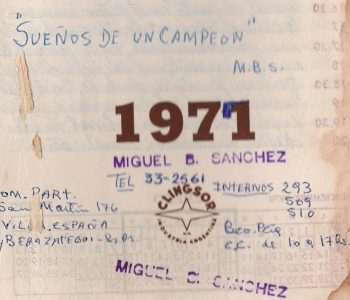 "SUEÑOS DE UN CAMPEON"
M.B.S.
1971
MIGUEL B. SANCHEZ
TEL 33-2561
INTERNOS 293
509
510
CLINGSOR
INDUSTRIA ARGENTINA
DOM. PART.
San Martin 176
VILLA ESPAÑA
BERAZATEGUI - Bs. As.
de 10 a 17 hs.
MIGUEL B. SANCHEZ